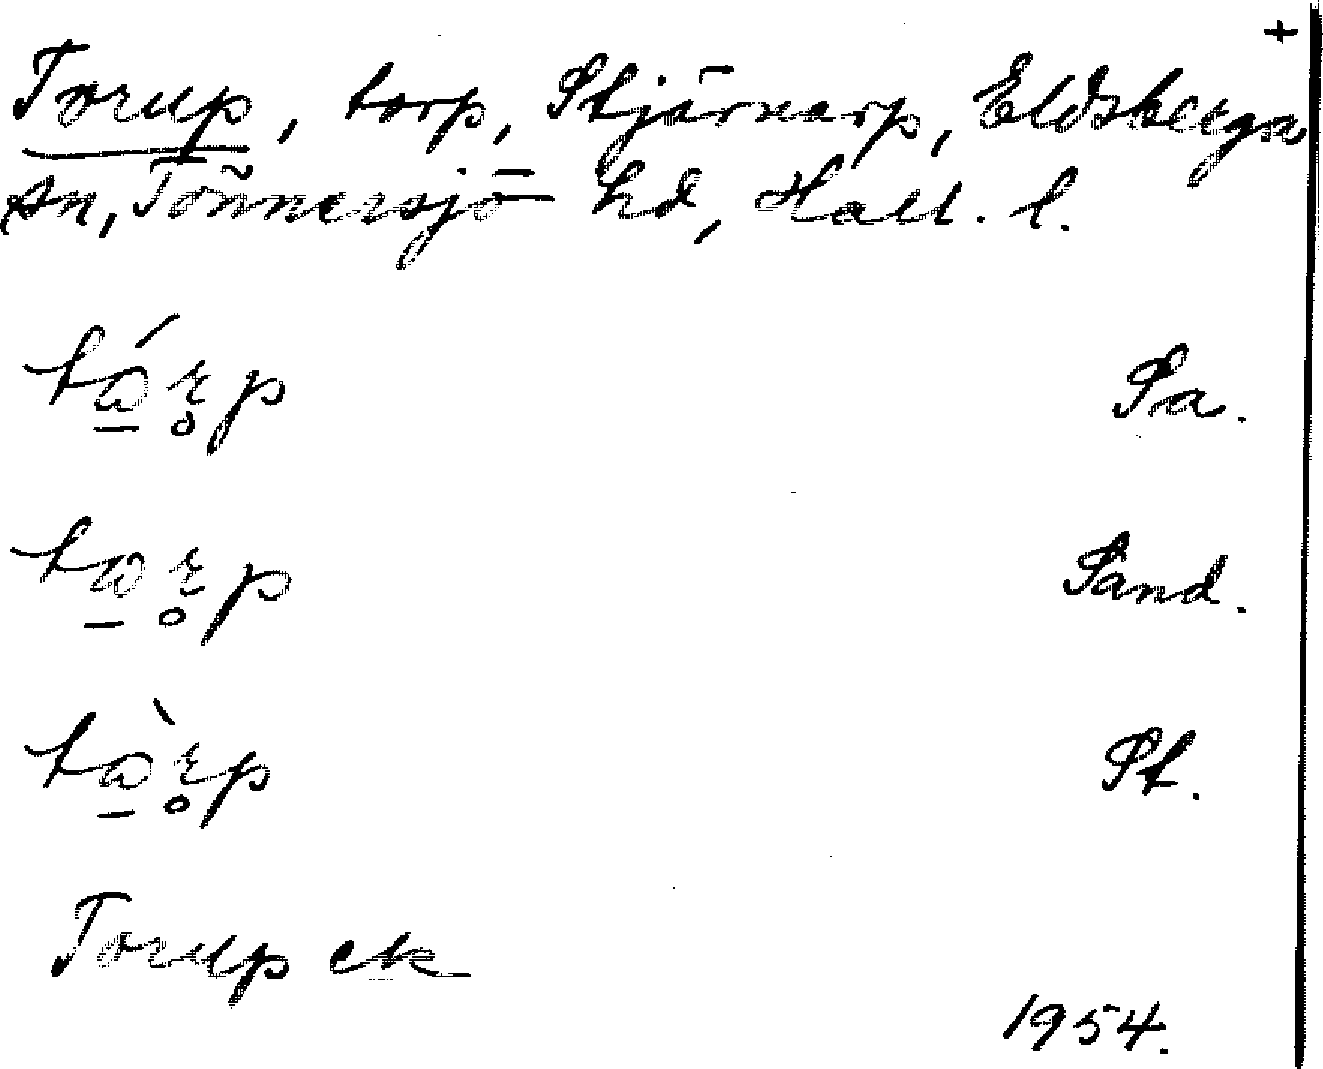 +
Torup, torp, Stjärnarp, Eldsberga
sn, Tönnersjö hd, Hall. l.
tá̱r̥p Sa.
ta̱r̥p Sand.
tà̱r̥p St.
Torup ek
1954.